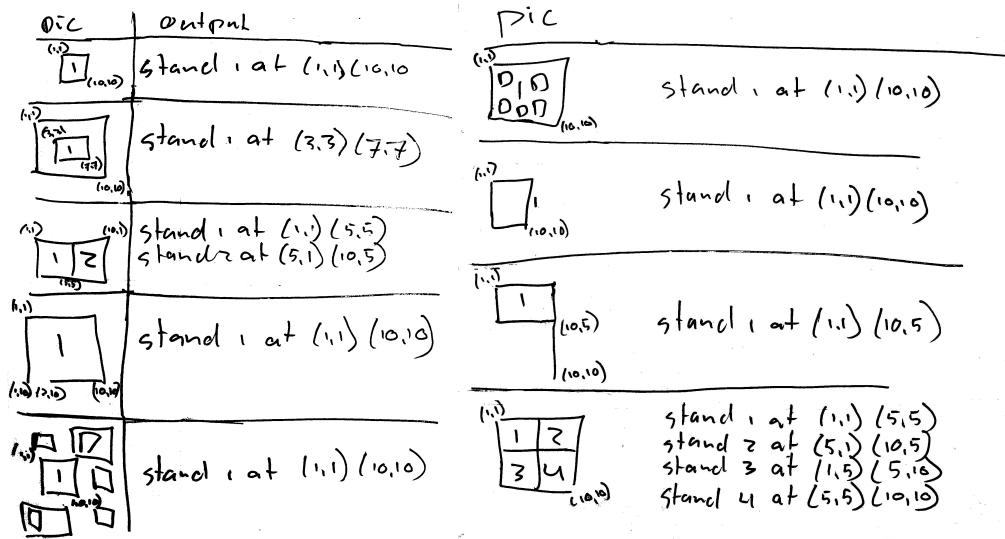 pic output
(1,1)
1
(10,10)
stand 1 at (1,1)(10,10
(1,1)
(3,3)
1
(7,7)
(10,10)
stand 1 at (3,3)(7,7)
(1,1) (10,1)
1 2
(5,5)
stand 1 at (1,1)(5,5)
stand 2 at (5,1)(10,5)
(1,1)
1
(1,10) (2,10) (10,10)
stand 1 at (1,1)(10,10)
(1,1)
1
(10,10)
stand 1 at (1,1)(10,10)
pic
(1,1)
1
(10,10)
stand 1 at (1,1)(10,10)
(1,1)
1
(10,10)
stand 1 at (1,1)(10,10)
(1,1)
1
(10,5)
(10,10)
stand 1 at (1,1)(10,5)
(1,1)
1 2
3 4
(10,10)
stand 1 at (1,1)(5,5)
stand 2 at (5,1)(10,5)
stand 3 at (1,5)(5,10)
stand 4 at (5,5)(10,10)